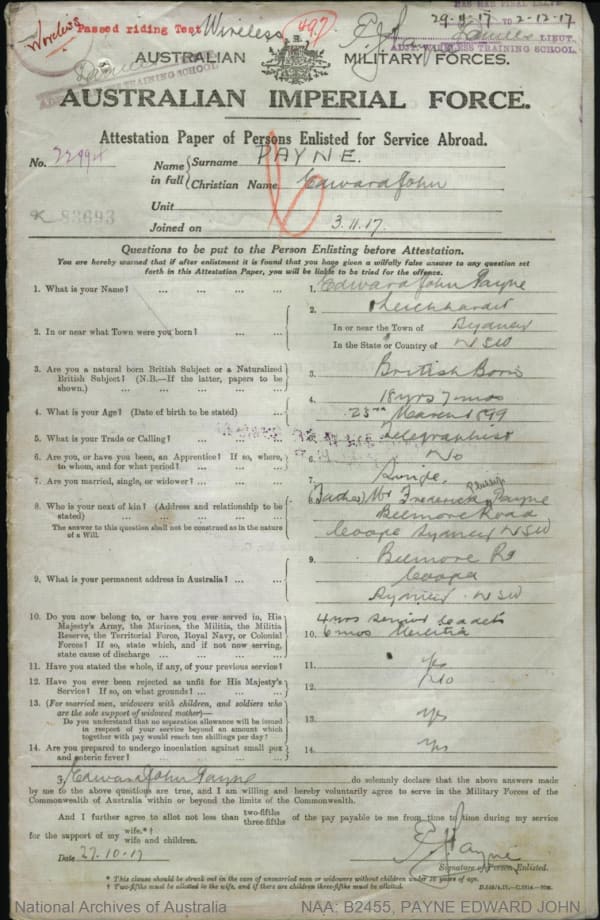 HAS HAD FINAL LEAVE
29-11-17 TO 2-12-17
Wireless Passed riding Test Wireless 497
LIEUT.
ADJT. WIRELESS TRAINING SCHOOL
TRAINING SCHOOL
AUSTRALIAN MILITARY FORCES.
AUSTRALIAN IMPERIAL FORCE.
Attestation Paper of Persons Enlisted for Service Abroad.
No.
Name in full { Surname PAYNE.
Christian Name Edward John
K 83693
Unit
Joined on 3.11.17.
Questions to be put to the Person Enlisting before Attestation.
You are hereby warned that if after enlistment it is found that you have given a wilfully false answer to any question set
forth in this Attestation Paper, you will be liable to be tried for the offence.
1. What is your Name? ... ... ... ... 1. Edward John Payne
2. In or near what Town were you born? ... ... 2. Leichhardt
In or near the Town of Sydney
In the State or Country of NSW
3. Are you a natural born British Subject or a Naturalized
British Subject? (N.B.—If the latter, papers to be
shown.) ... ... ... ... 3. British Born
4. What is your Age? (Date of birth to be stated) ... 4. 18 yrs 7 mos
23rd March 1899
5. What is your Trade or Calling? ... ... ... 5. Telegraphist
6. Are you, or have you been, an Apprentice? If so, where,
to whom, and for what period? ... ... ... 6. No
7. Are you married, single, or widower? ... ... 7. Single
8. Who is your next of kin? (Address and relationship to be
stated) ... ... ... ... 8. (Father) Mr Frederick Payne
The answer to this question shall not be construed as in the nature
of a Will.
Belmore Road
Coogee Sydney NSW
9. What is your permanent address in Australia? ... ... 9. Belmore Rd
Coogee
Sydney NSW
10. Do you now belong to, or have you ever served in, His
Majesty's Army, the Marines, the Militia, the Militia
Reserve, the Territorial Force, Royal Navy, or Colonial
Forces? If so, state which, and if not now serving,
state cause of discharge ... ... ... 10. 4 yrs Senior Cadets
6 mos Militia
11. Have you stated the whole, if any, of your previous service? 11. Yes
12. Have you ever been rejected as unfit for His Majesty's
Service? If so, on what grounds? ... ... ... 12. No
13. (For married men, widowers with children, and soldiers who
are the sole support of widowed mother)—
Do you understand that no separation allowance will be issued
in respect of your service beyond an amount which
together with pay would reach ten shillings per day? 13. Yes
14. Are you prepared to undergo inoculation against small pox
and enteric fever? ... ... ... ... 14. Yes
I, Edward John Payne do solemnly declare that the above answers made
by me to the above questions are true, and I am willing and hereby voluntarily agree to serve in the Military Forces of the
Commonwealth of Australia within or beyond the limits of the Commonwealth.
And I further agree to allot not less than two-fifths three-fifths of the pay payable to me from time to time during my service
for the support of my wife.*† wife and children.
Date 27.10.17
E J Payne
Signature of Person Enlisted.
* This clause should be struck out in the case of unmarried men or widowers without children under 18 years of age.
† Two-fifths must be allotted to the wife, and if there are children three-fifths must be allotted.
National Archives of Australia NAA: B2455, PAYNE EDWARD JOHN